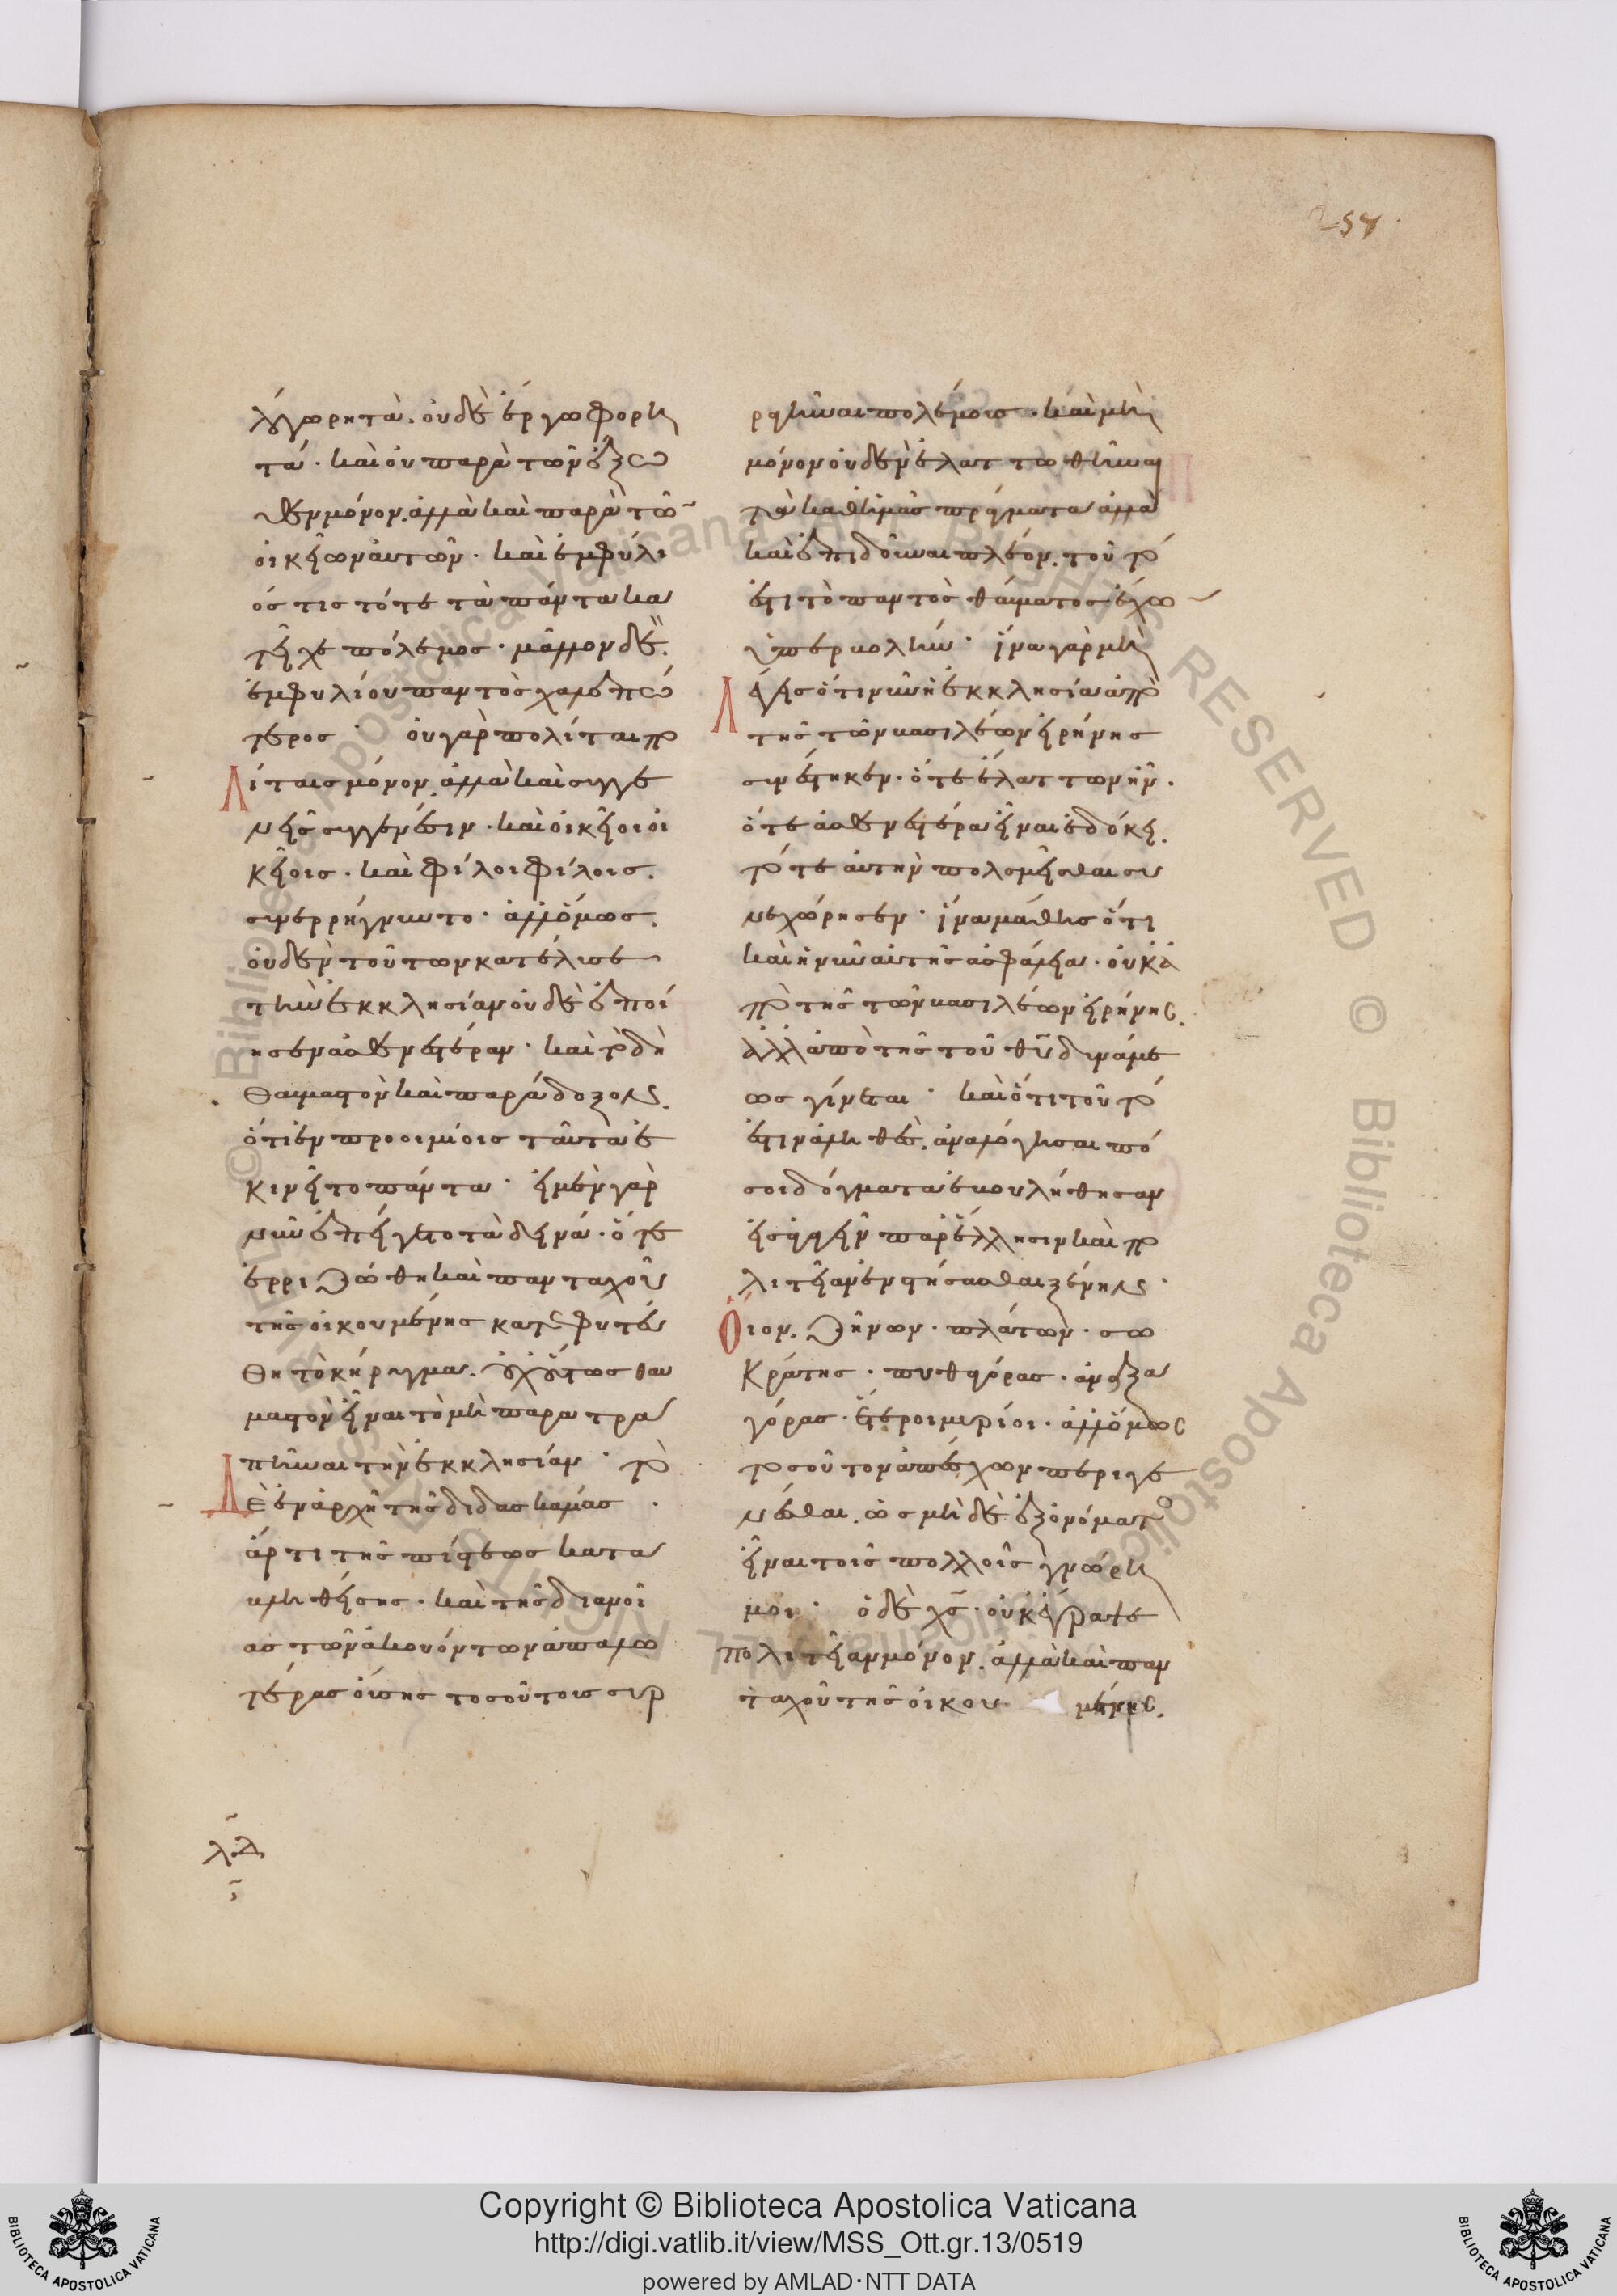 257.
λόγω ρητὰ. οὐδὲ ἔργω φορη
τά. καὶ οὐ παρὰ τῶν ἔξω
θεν μόνον. ἀλλὰ καὶ παρὰ τῶ̄
οἰκείων αὐτῶν. καὶ ἐμφύλι
ός τις τότε τὰ πάντα κα
τεῖχε πόλεμος. μᾶλλον δὲ.
ἐμφυλίου παντὸς χαλεπώ
τερος. οὐ γὰρ πολῖται πο
λίταις μόνον. ἀλλὰ καὶ συγγε
νεῖς συγγενέσιν. καὶ οἰκεῖοι οἰ
κείοις. καὶ φίλοι φίλοις.
συνερρήγνυντο. ἀλλ' ὅμως.
οὐδὲν τούτων κατέλυσε
τὴν ἐκκλησίαν οὐδὲ ἐποί
ησεν ἀσθενεστέραν. καὶ τὸ δὴ
θαυμαστὸν καὶ παράδοξον.
ὅτι ἐν προοιμίοις ταῦτα ἐ
κινεῖτο πάντα. εἰ μὲν γὰρ
νῦν ἐπήγετο τὰ δεινά. ὅτε
ἐρριζώθη καὶ πανταχοῦ
τῆς οἰκουμένης κατεφυτεύ
θη τὸ κήρυγμα. οὐχ οὕτως θαυ
μαστὸν εἶναι τὸ μὴ παρατρα
πῆναι τὴν ἐκκλησίαν. τὸ
Δὲ ἐν ἀρχῇ τῆς διδασκαλίας.
ἄρτι τῆς πίστεως κατα
βληθείσης. καὶ τῆς διανοί
ας τῶν ἀκουόντων ἁπαλω
τέρας οὔσης τοσούτοις συρ
λδ
ραγῆναι πολέμοις. καὶ μὴ
μόνον οὐδὲν ἐλαττωθῆναι
τὰ καθ' ἡμᾶς πράγματα ἀλλὰ
καὶ ἐπιδοῦναι πλέον. τοῦτό
ἐστι τὸ παντὸς θαύματος ἔχω
ὑπερβολήν. ἵνα γὰρ μὴ
Λέγης ὅτι νῦν ἡ ἐκκλησία ἀπὸ
τῆς τῶν βασιλέων εἰρήνης
συνέστηκεν. ὅτε ἐλάττων ἦν.
ὅτε ἀσθενεστέρα εἶναι ἐδόκει.
τότε αὐτὴν πολεμεῖσθαι συ
νεχώρησεν. ἵνα μάθης ὅτι
καὶ ἡ νῦν αὐτῆς ἀσφάλεια. οὐκ ἀ
πὸ τῆς τῶν βασιλέων εἰρήνης.
ἀλλ' ἀπὸ τῆς τοῦ θῡ δυνάμε
ως γίνεται. καὶ ὅτι τοῦτό
ἐστιν ἀληθές. ἀναλόγισαι πό
σοι δόγματα ἐβουλήθησαν
εἰσαγαγεῖν παρ' ἕλλησιν καὶ πο
λιτείαν ἐνστήσασθαι ξένην.
Οἷον. Ζήνων. πλάτων. σω
κράτης. πυθαγόρας. ἀναξα
γόρας. ἕτεροι μυρίοι. ἀλλ' ὅμως
τοσοῦτον ἀπέσχον περιγε
νέσθαι. ὡς μηδὲ ἐξ ὀνόματο
εἶναι τοῖς πολλοῖς γνώρι
μοι. ὁ δὲ χς̄. οὐκ ἔγραψε
πολιτείαν μόνον. ἀλλὰ καὶ παν
ταχοῦ τῆς οἰκου μένης.
Copyright © Biblioteca Apostolica Vaticana
http://digi.vatlib.it/view/MSS_Ott.gr.13/0519
powered by AMLAD·NTT DATA